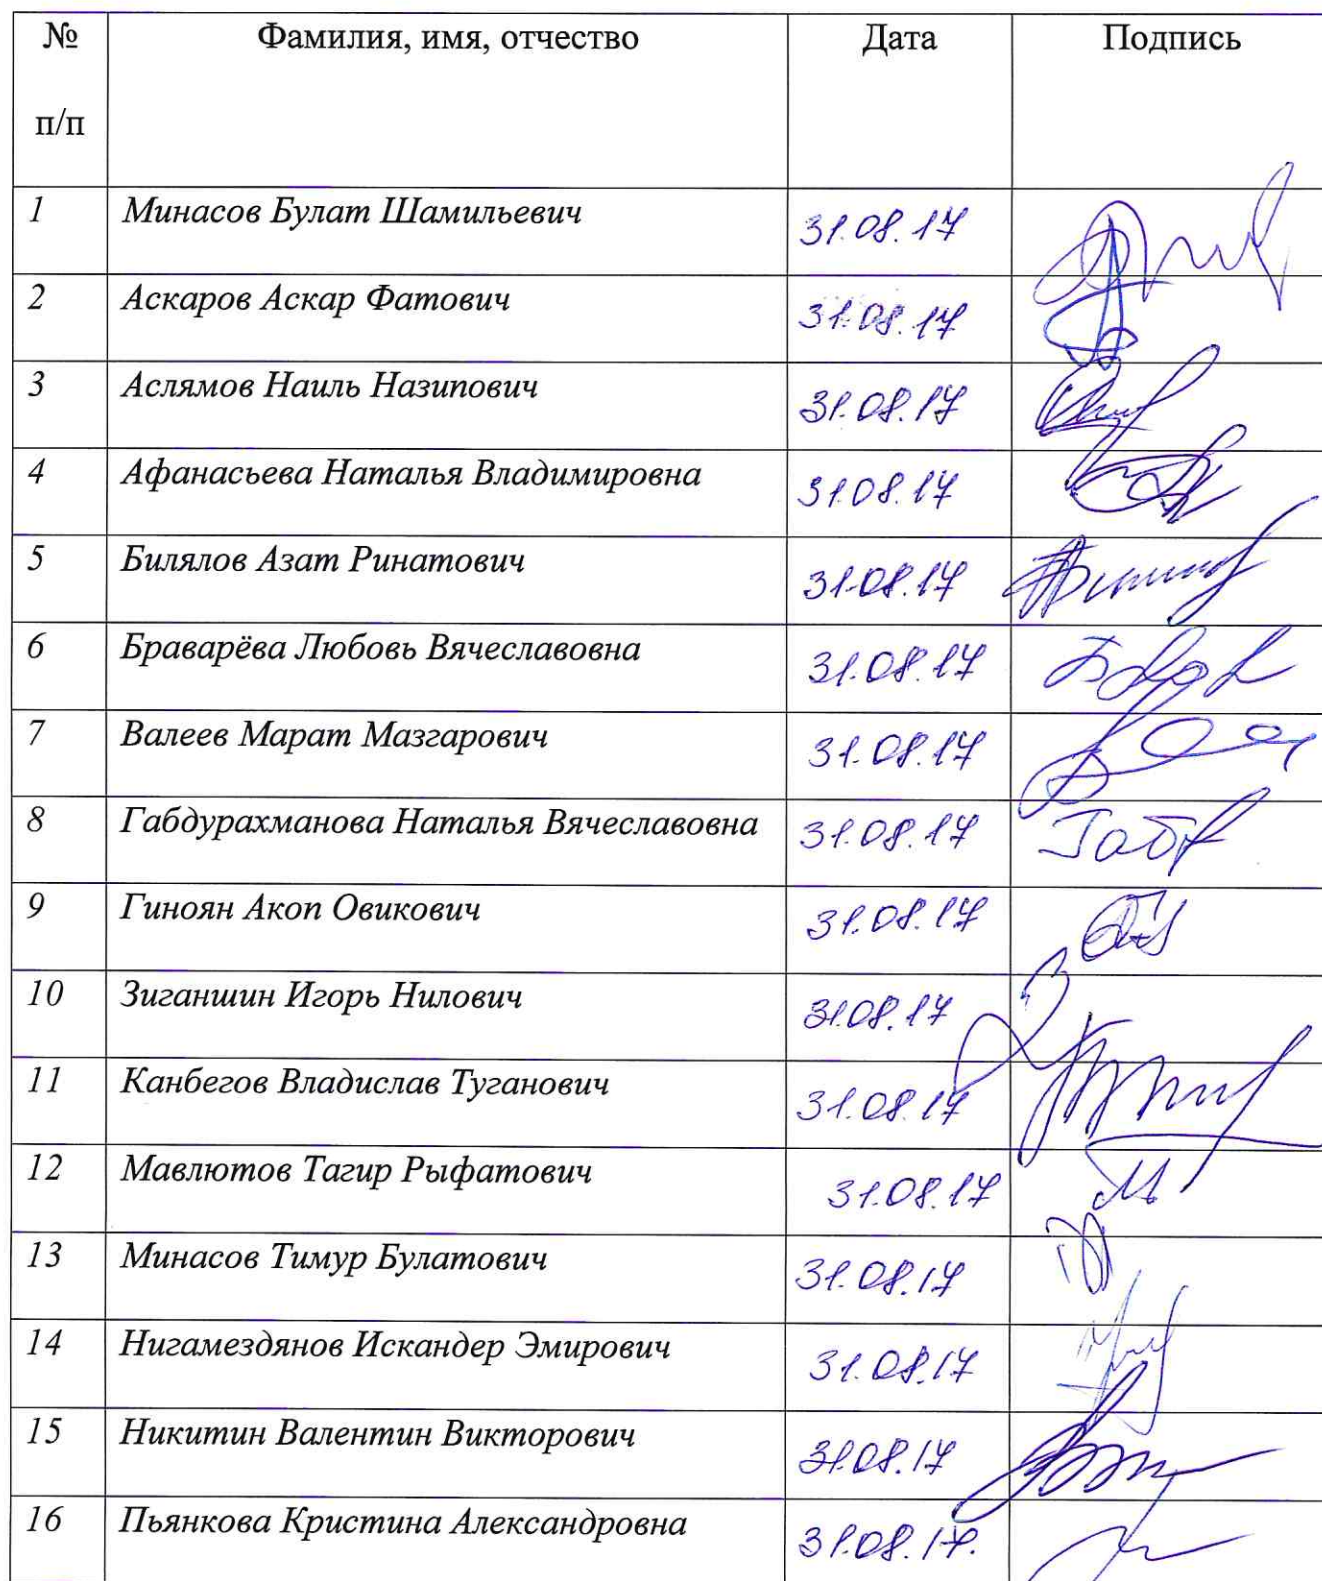 № п/п Фамилия, имя, отчество Дата Подпись
1 Минасов Булат Шамильевич 31.08.17
2 Аскаров Аскар Фатович 31.08.17
3 Аслямов Наиль Назипович 31.08.17
4 Афанасьева Наталья Владимировна 31.08.17
5 Билялов Азат Ринатович 31.08.17
6 Браварёва Любовь Вячеславовна 31.08.17
7 Валеев Марат Мазгарович 31.08.17
8 Габдурахманова Наталья Вячеславовна 31.08.17
9 Гиноян Акоп Овикович 31.08.17
10 Зиганшин Игорь Нилович 31.08.17
11 Канбегов Владислав Туганович 31.08.17
12 Мавлютов Тагир Рыфатович 31.08.17
13 Минасов Тимур Булатович 31.08.17
14 Нигамездянов Искандер Эмирович 31.08.17
15 Никитин Валентин Викторович 31.08.17
16 Пьянкова Кристина Александровна 31.08.17.